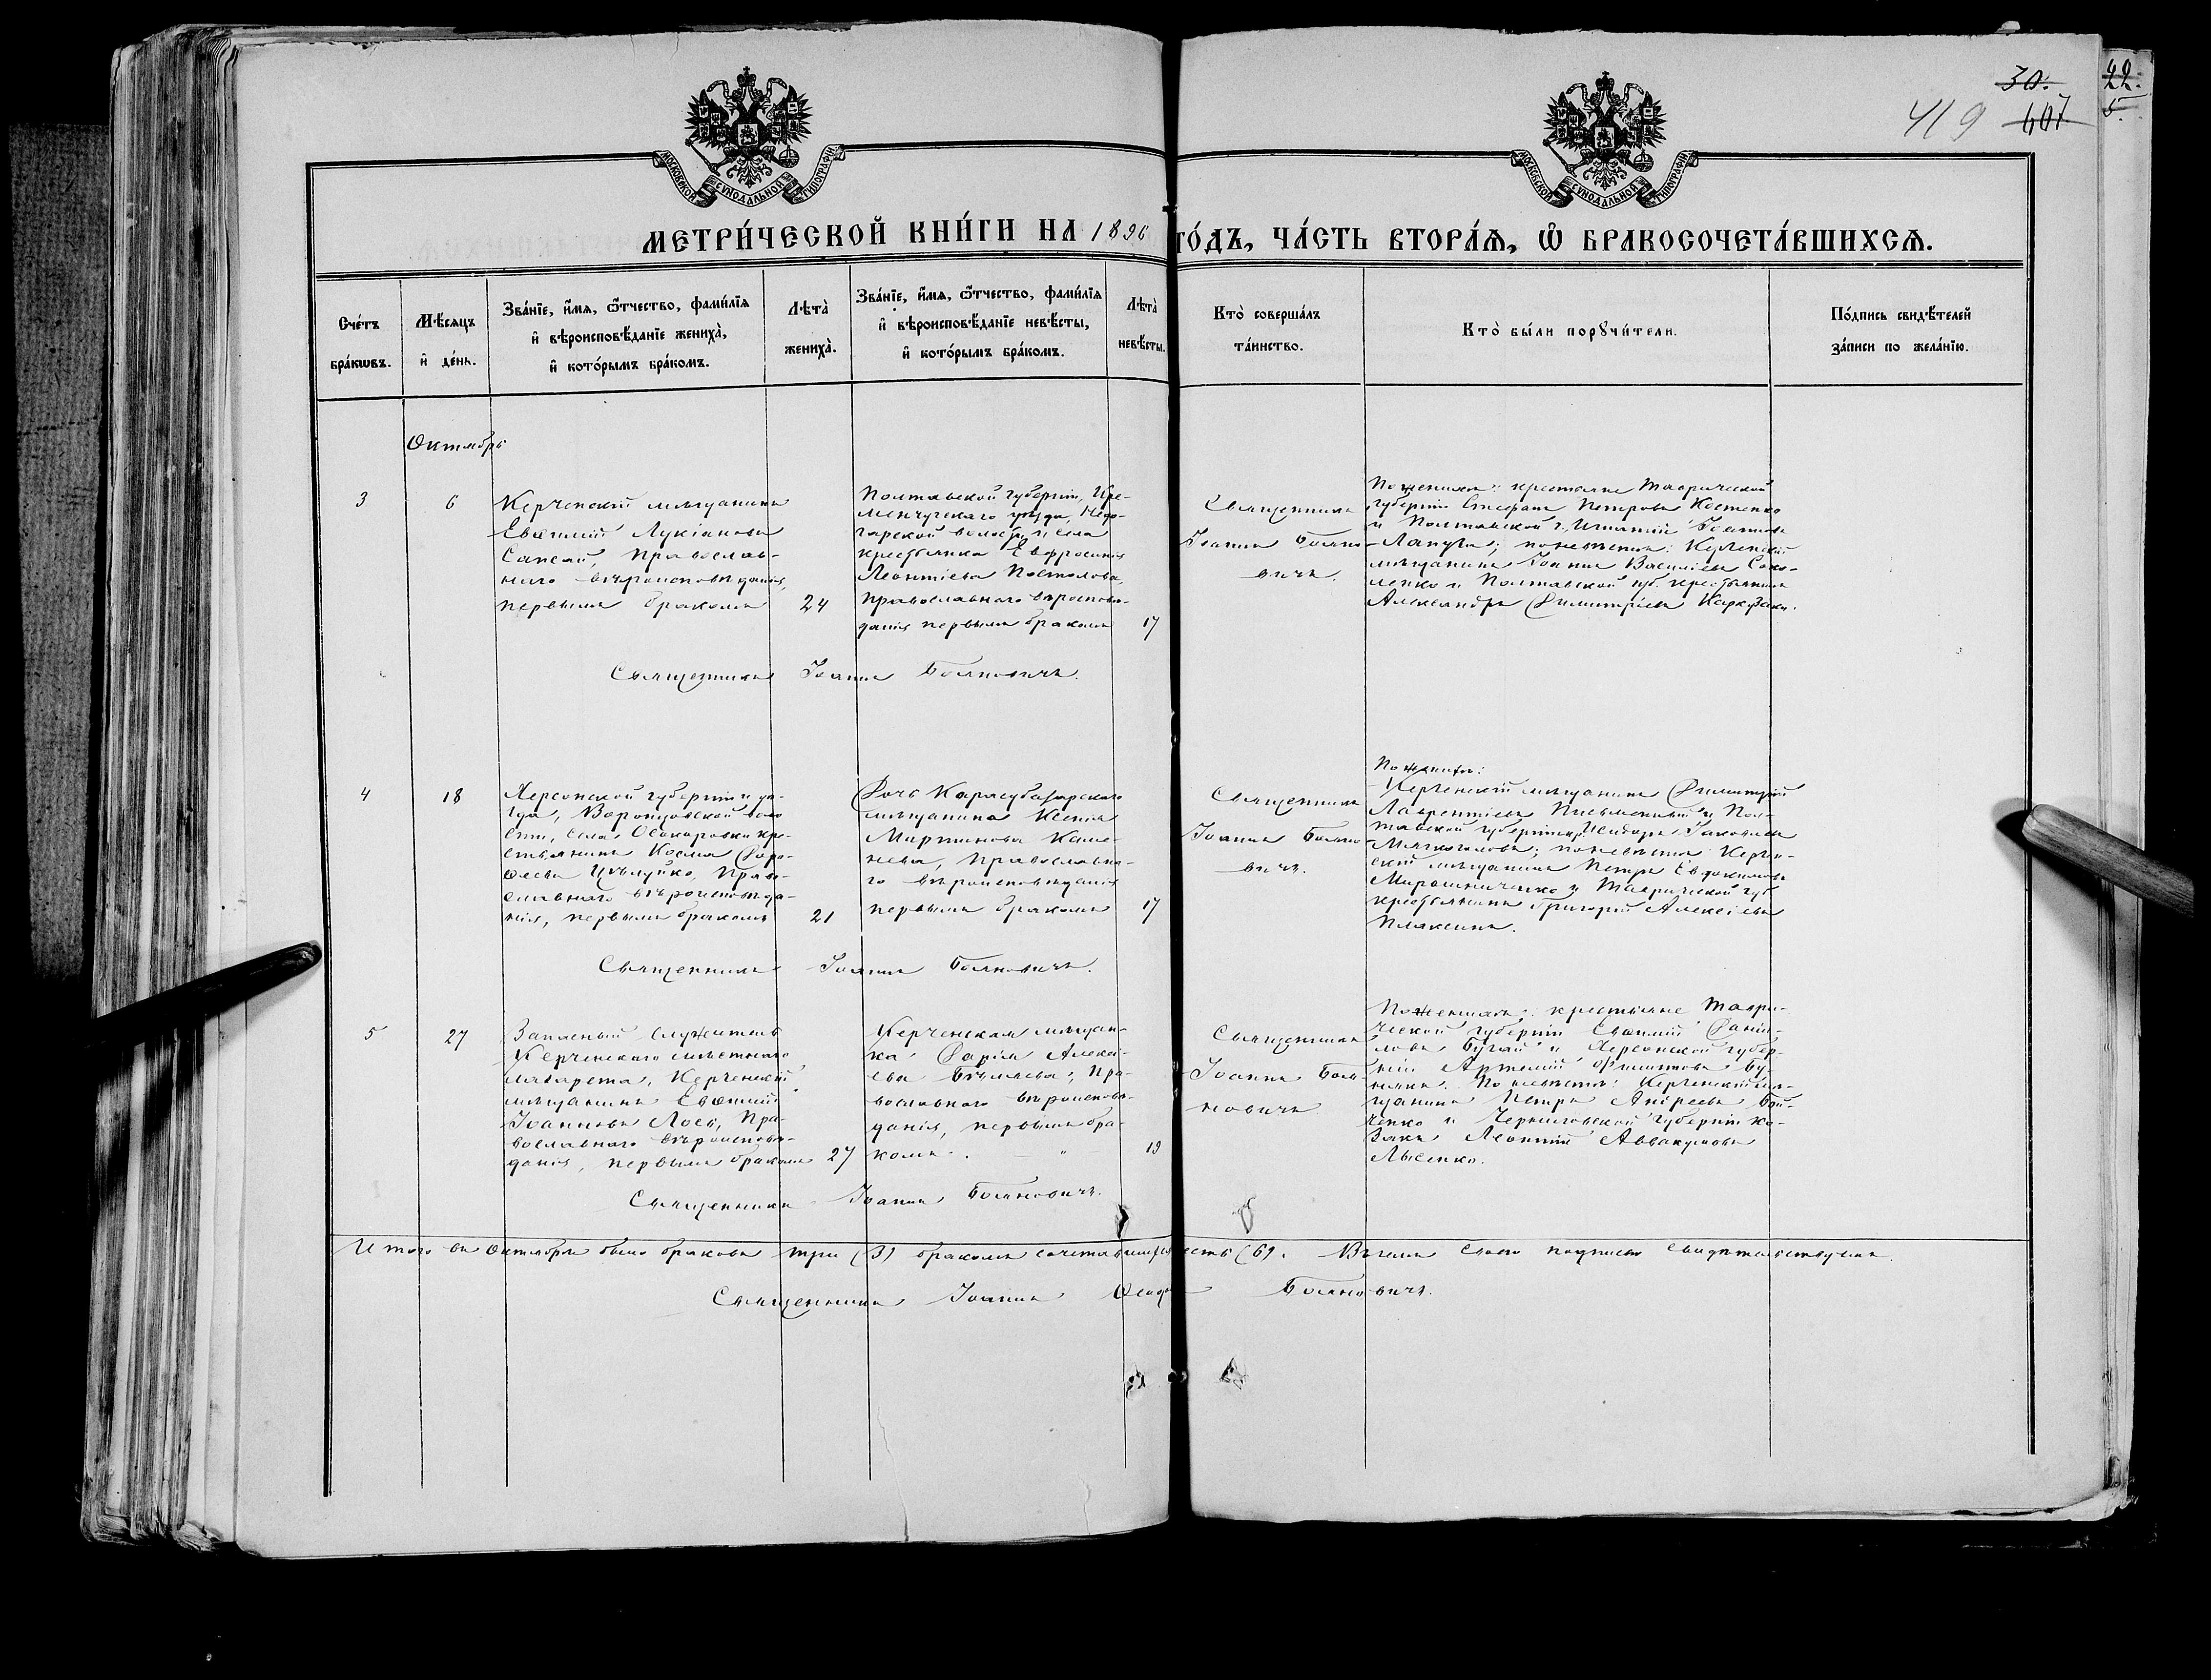 30.
419 407
22.
5.
МОСКОВСКОЙ СУНОДАЛЬНОЙ ТИПОГРАФІИ
МОСКОВСКОЙ СУНОДАЛЬНОЙ ТИПОГРАФІИ
МЕТРИ́ЧЕСКОЙ КНИ́ГИ НА 1896 ГО́ДЪ, ЧА́СТЬ ВТОРА́Ѧ, Ѡ҆ БРАКОСОЧЕТА́ВШИХСѦ.
Сче́тъ
бра́кѡвъ.
Мѣ́сѧцъ
и҆ де́нь.
Зва́нїе, и҆́мѧ, ѻ҆́тчество, фами́лїѧ
и҆ вѣроисповѣ́данїе жениха̀,
и҆ кото́рымъ бра́комъ.
Лѣта̀
жениха̀.
Зва́нїе, и҆́мѧ, ѻ҆́тчество, фами́лїѧ
и҆ вѣроисповѣ́данїе невѣ́сты,
и҆ кото́рымъ бра́комъ.
Лѣта̀
невѣ́сты.
Кто̀ соверша́лъ
та́инство.
Кто̀ бы́ли порꙋчи́тели.
По́дпись свидѣ́телей
за́писи по жела́нїю.
Октябрь
3
6
Керченскій мѣщанинъ
Евѳимій Лукіановъ
Сапсай, православ-
наго вѣроисповѣданія,
первымъ бракомъ
24
Полтавской губерніи, Кре-
менчугскаго уѣзда, Недо-
гарской волости и села
крестьянка Евфросинія
Леонтіева Постолова,
православнаго вѣроиспове-
данія первымъ бракомъ
17
Священникъ
Іоаннъ Бояно-
вичъ.
По женихѣ: крестьяне Таврической
губерніи Стефанъ Петровъ Костенко
и Полтавской г. Игнатій Іоанновъ
Лапута; по невѣстѣ: Керченскій
мѣщанинъ Іоаннъ Васильевъ Соко-
ленко и Полтавской губ. крестьянинъ
Александръ Димитріевъ
Священникъ Іоаннъ Бояновичъ.
4
18
Херсонской губерніи и уѣ-
зда, Воронцовской воло
сти, села Осокоровки кре-
стьянинъ Косма Доро-
ѳеевъ Цѣлуйко, Право-
славнаго вѣроисповѣда-
нія, первымъ бракомъ
21
Дочь Карасубазарскаго
мѣщанина Ксенія
Мартинова Каме-
нева, Православна-
го вѣроисповѣданія
первымъ бракомъ
17
Священникъ
Іоаннъ Бояно
вичъ.
По женихѣ:
Керченскій мѣщанинъ Димитрій
Лаврентіевъ Письменный и Пол-
тавской губерніи Исидоръ Іаковлевъ
Мягкоголовъ; по невѣстѣ Керчен-
скій мѣщанинъ Петръ Евдокимовъ
Мирошниченко и Таврической губ
крестьянинъ Григорій Алексіевъ
Плаксинъ.
Священникъ Іоаннъ Бояновичъ.
5
27
Запасный служитель
Керченскаго мѣстнаго
лазарета, Керченскій
мѣщанинъ Евѳимій
Іоанновъ Лось, Пра-
вославнаго вѣроисповѣ-
данія, первымъ бракомъ
27
Керченская мѣщан-
ка Дарія Алексі-
ева Бѣляева, Пра-
вославнаго вѣроисповѣ-
данія, первымъ бра-
комъ.
19
Священникъ
Іоаннъ Боя-
новичъ
По женихѣ: крестьяне Таври-
ческой губерніи Евѳимій Даніи-
ловъ Бугай и Херсонской губер-
ніи Артемій Филиповъ Бу-
някъ. По невѣстѣ: Керченскій мѣ-
щанинъ Петръ Андреевъ Бой-
ченко и Черниговской губерніи ко-
закъ Леонтій Аввакумовъ
Лысенко.
Священникъ Іоаннъ Бояновичъ.
Итого въ Октябрѣ было браковъ три (3) бракомъ сочетавшихся шесть (6). Въ чемъ своею подписью свидѣтельствуемъ.
Священникъ Іоаннъ Бояновичъ.